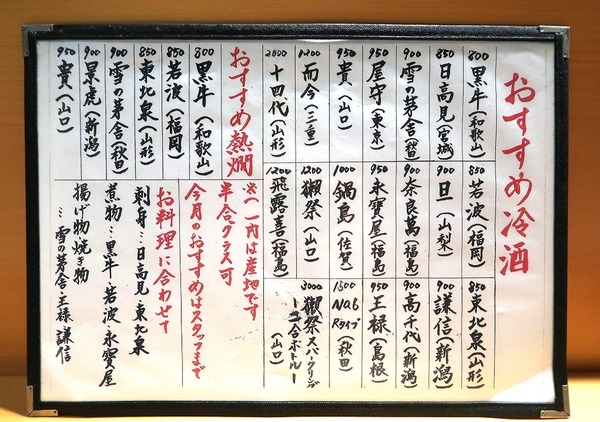 おすすめ冷酒
800 黒牛(和歌山)
850 日高見(宮城)
900 雪の茅舎(秋田)
950 屋守(東京)
950 貴(山口)
1200 而今(三重)
2000 十四代(山形)
850 若波(福岡)
900 旦(山梨)
900 奈良萬(福島)
950 永寶屋(福島)
1000 鍋島(佐賀)
1200 獺祭(山口)
1200 飛露喜(福島)
850 東北泉(山形)
900 謙信(新潟)
900 高千代(新潟)
950 王祿(島根)
1300 No.6 Rタイプ(秋田)
3000 獺祭スパークリング
ー二合ボトルー
(山口)
おすすめ熱燗
800 黒牛(和歌山)
850 若波(福岡)
850 東北泉(山形)
900 雪の茅舎(秋田)
900 景虎(新潟)
950 貴(山口)
※( )内は産地です
半合グラス可
今月のおすすめはスタッフまで
お料理に合わせて
刺身…日高見・東北泉
煮物…黒牛・若波・永寶屋
揚げ物焼き物
…雪の茅舎・王祿・謙信